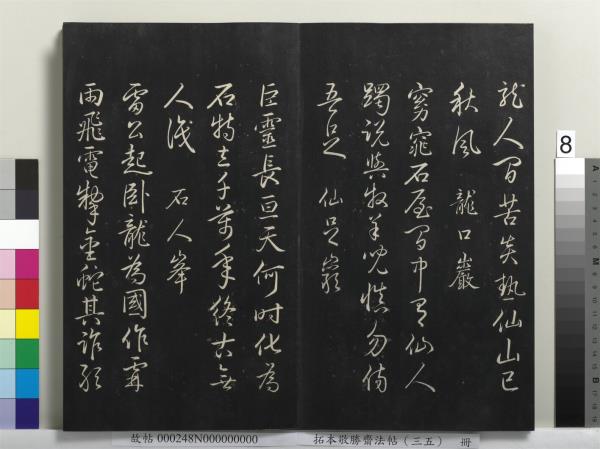 龍人間苦炎熱仙山已
秋風 龍口巖
窈窕石屋間中有仙人
躅說與牧羊兒慎勿傷
吾足 仙足巖
巨靈長亘天何時化為
石特立千萬年終古無
人識 石人峯
雷公起卧龍為國作霖
雨飛電掣金蛇其誰敢
8
故帖 000248N000000000 拓本敬勝齋法帖（三五） 冊